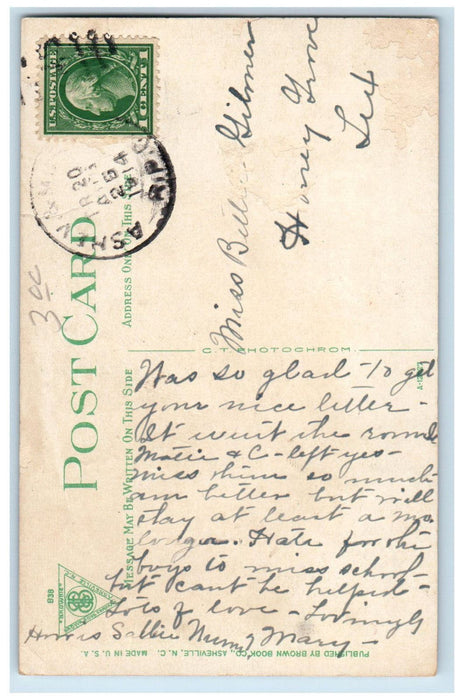 U.S. POSTAGE
1 CENT 1
ASH
TR 20
APR
25
1914
R.P.O.
3.00
POST CARD
ADDRESS ONLY ON THIS SIDE
MESSAGE MAY BE WRITTEN ON THIS SIDE
Miss Billie Gilmer
Honey Grove
Tex
C.T. PHOTOCHROM.
Was so glad to get
your nice letter -
It went the rounds
& C - left yes -
miss them so much
am better but will
stay at least a mo.
longer. Hate for the
boys to miss school -
but can't be helped -
Lots of love - Lovingly
Mary -
Hows Sallie
838
ASHEVILLE, N.C.
PUBLISHED BY BROWN BOOK CO., ASHEVILLE, N.C. MADE IN U.S.A.